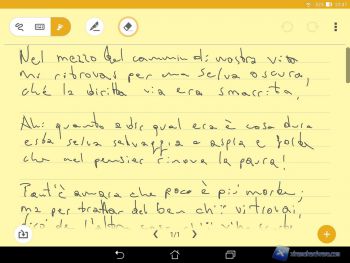 Nel mezzo del cammin di nostra vita
mi ritrovai per una selva oscura,
ché la diritta via era smarrita.
Ahi quanto a dir qual era è cosa dura
esta selva selvaggia e aspra e forte
che nel pensier rinova la paura!
Tant'è amara che poco è più morte;
ma per trattar del ben ch'i' vi trovai,
1/1